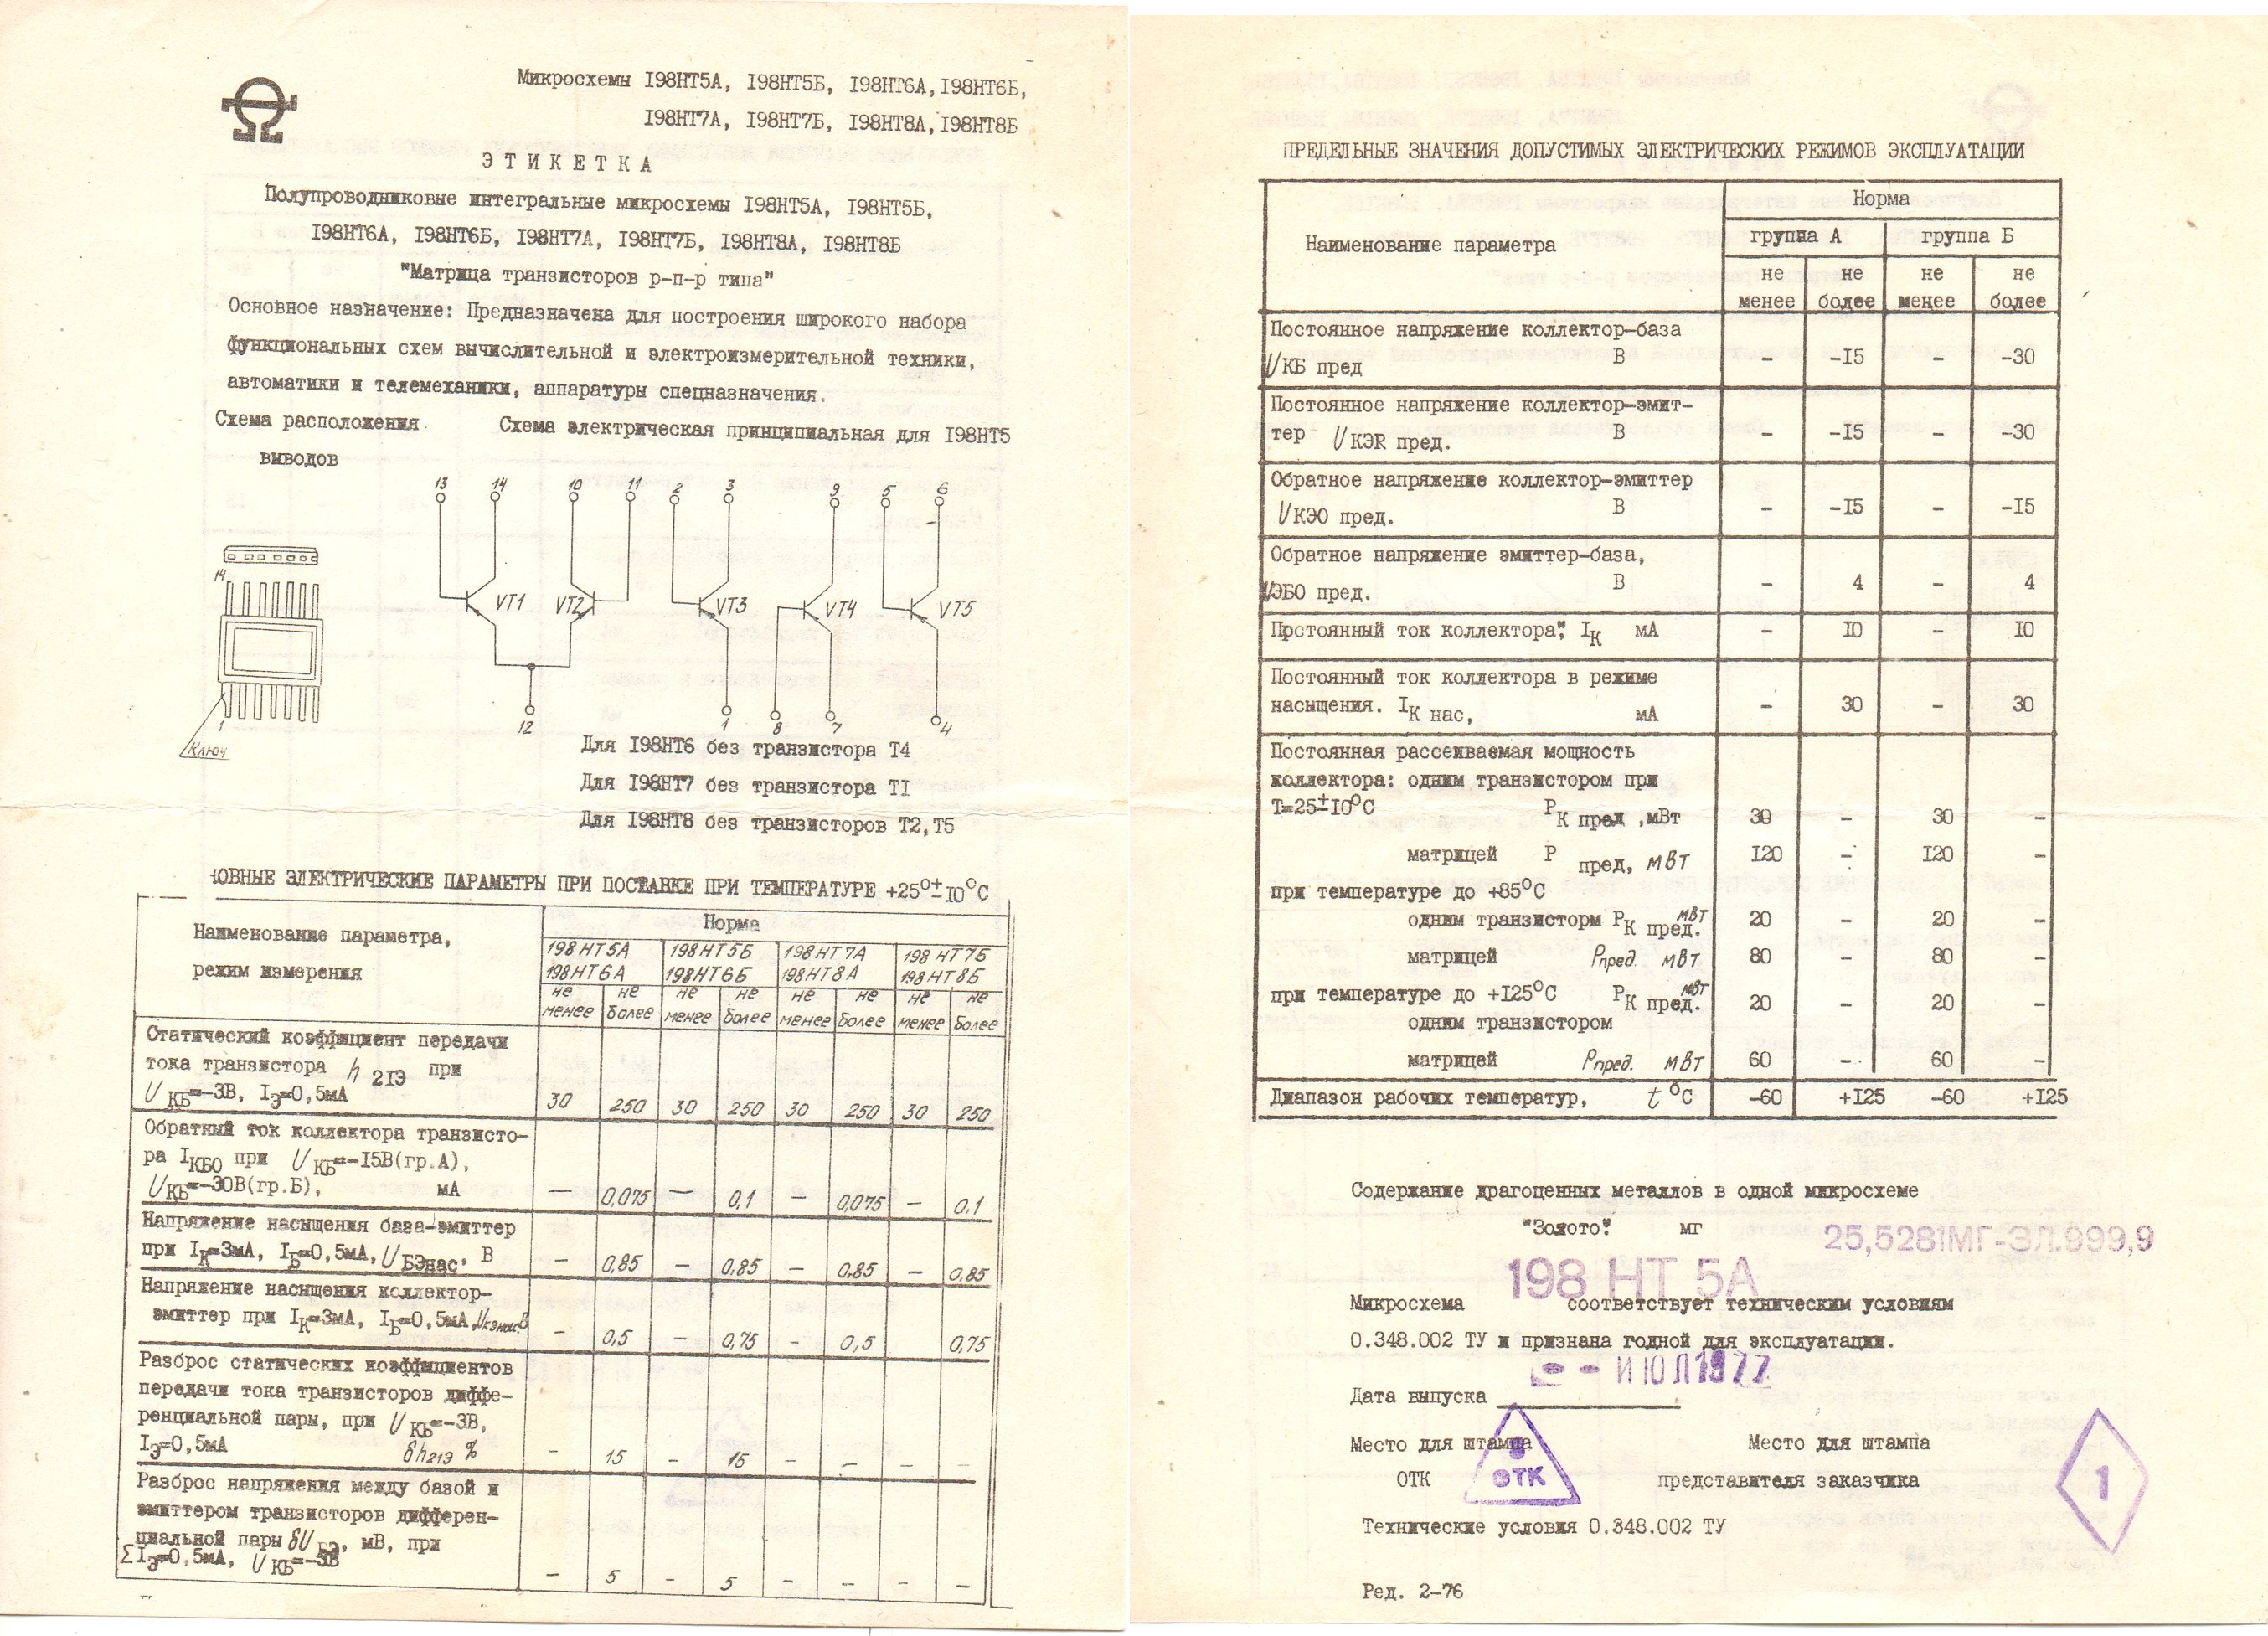 Микросхемы I98НТ5А, I98НТ5Б, I98НТ6А, I98НТ6Б,
I98НТ7А, I98НТ7Б, I98НТ8А, I98НТ8Б
ЭТИКЕТКА
Полупроводниковые интегральные микросхемы I98НТ5А, I98НТ5Б,
I98НТ6А, I98НТ6Б, I98НТ7А, I98НТ7Б, I98НТ8А, I98НТ8Б
"Матрица транзисторов р-п-р типа"
Основное назначение: Предназначена для построения широкого набора
функциональных схем вычислительной и электроизмерительной техники,
автоматики и телемеханики, аппаратуры спецназначения.
Схема расположения Схема электрическая принципиальная для I98НТ5
выводов
13 14 10 11 2 3 9 5 6
14
VT1 VT2 VT3 VT4 VT5
1
Ключ
12 1 8 7 4
Для I98НТ6 без транзистора Т4
Для I98НТ7 без транзистора ТI
Для I98НТ8 без транзисторов Т2,Т5
ОВНЫЕ ЭЛЕКТРИЧЕСКИЕ ПАРАМЕТРЫ ПРИ ПОСТАВКЕ ПРИ ТЕМПЕРАТУРЕ +25°±I0°С
Наименование параметра, Норма
режим измерения
198НТ5А 198НТ5Б 198НТ7А 198НТ7Б
198НТ6А 198НТ6Б 198НТ8А 198НТ8Б
не не не не не не не не
менее более менее более менее более менее более
Статический коэффициент передачи
тока транзистора h 2IЭ при
U КБ=-3В, IЭ=0,5мА 30 250 30 250 30 250 30 250
Обратный ток коллектора транзисто-
ра IКБО при U КБ=-I5В(гр.А),
U КБ=-30В(гр.Б), мА — 0,075 — 0,1 — 0,075 — 0,1
Напряжение насыщения база-эмиттер
при IК=3мА, IБ=0,5мА, U БЭнас. В – 0,85 – 0,85 – 0,85 – 0,85
Напряжение насыщения коллектор-
эмиттер при IК=3мА, IБ=0,5мА, Uкэнас.В – 0,5 – 0,75 – 0,5 0,75
Разброс статических коэффициентов
передачи тока транзисторов диффе-
ренциальной пары, при U КБ=-3В,
IЭ=0,5мА δh21Э % – 15 – 15 – – – –
Разброс напряжения между базой и
эмиттером транзисторов дифферен-
циальной пары δU БЭ, мВ, при
ΣIЭ=0,5мА, U КБ=-3В – 5 – 5 – – – –
ПРЕДЕЛЬНЫЕ ЗНАЧЕНИЯ ДОПУСТИМЫХ ЭЛЕКТРИЧЕСКИХ РЕЖИМОВ ЭКСПЛУАТАЦИИ
Норма
Наименование параметра группа А группа Б
не не не не
менее более менее более
Постоянное напряжение коллектор-база
U КБ пред В – -I5 – -30
Постоянное напряжение коллектор-эмит-
тер U КЭR пред. В – -I5 – -30
Обратное напряжение коллектор-эмиттер
U КЭО пред. В – -I5 – -I5
Обратное напряжение эмиттер-база,
U ЭБО пред. В – 4 – 4
Постоянный ток коллектора", IК мА – I0 – I0
Постоянный ток коллектора в режиме
насыщения. IК нас, мА – 30 – 30
Постоянная рассеиваемая мощность
коллектора: одним транзистором при
Т=25±I0°С РК пред ,мВт 30 – 30 –
матрицей Р пред, мВт I20 – I20 –
при температуре до +85°С
одним транзисторм РК пред. мВт 20 – 20 –
матрицей Рпред. мВт 80 – 80 –
при температуре до +I25°С РК пред. мВт 20 – 20 –
одним транзистором
матрицей Рпред. мВт 60 – 60 –
Диапазон рабочих температур, t °С -60 +I25 -60 +I25
Содержание драгоценных металлов в одной микросхеме
"Золото". мг 25,5281МГ-ЗЛ.999,9
198 НТ 5А
Микросхема соответствует техническим условиям
0.348.002 ТУ и признана годной для эксплуатации.
Дата выпуска - ИЮЛ 1977
Место для штампа Место для штампа
ОТК ОТК представителя заказчика 1
Технические условия 0.348.002 ТУ
Ред. 2-76